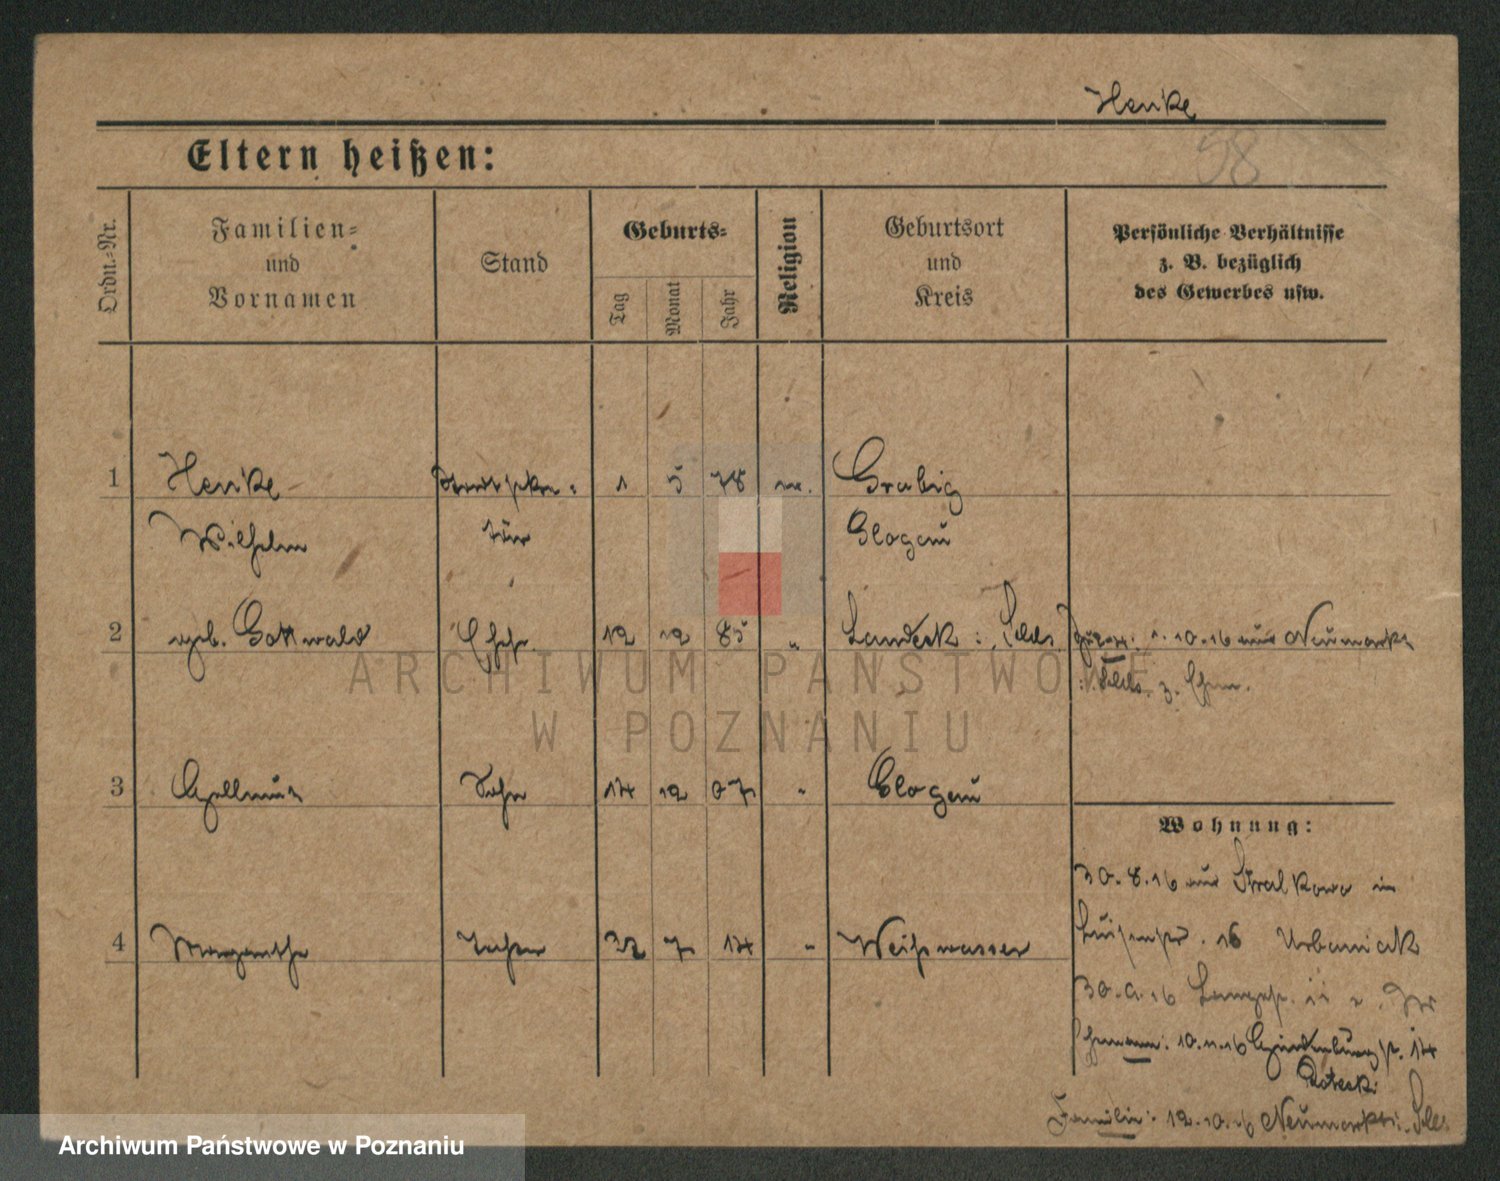 Henke
58
Eltern heißen:
Ordn.-Nr.
Familien-
und
Vornamen
Stand
Geburts-
Tag
Monat
Jahr
Religion
Geburtsort
und
Kreis
Persönliche Verhältnisse
z. B. bezüglich
des Gewerbes usw.
1 Henke 1 5 78 Grabig
Wilhelm Glogau
2 geb. Gottwald Ehefr. 12 12 85 " Landeck i. Schles. 1.10.16 aus Neumarkt
i. Schles. z. Ehem.
ARCHIWUM PAŃSTWOWE
W POZNANIU
3 Hellmut Sohn 14 12 07 " Glogau
Wohnung:
30.8.16 aus Stralkowo in
4 Margarethe Tochter 7 14 " Weißwasser
Luisenstr. 16 Urbaniak
30.9.16
Ehemann: 10.11.16 Hindenburgstr. 14
Familie: 12.10.16 Neumarkt i. Schles.
Archiwum Państwowe w Poznaniu